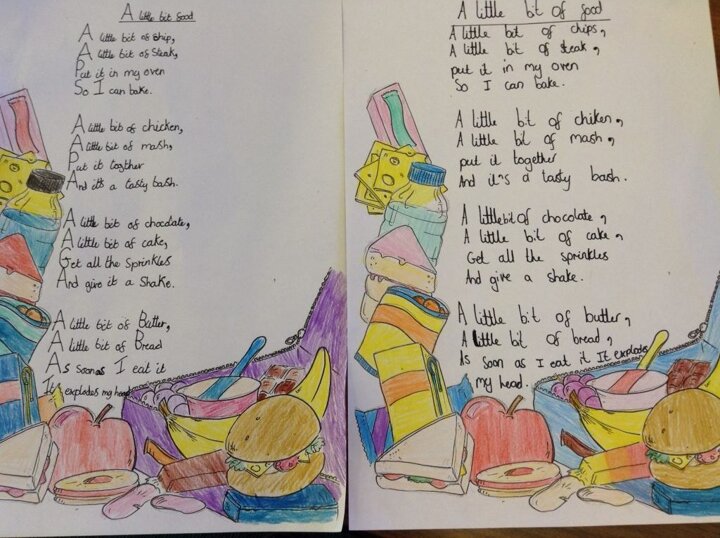 A little bit food
A little bit of ship,
A little bit of Steak,
Put it in my oven
So I can bake.
A little bit of chicken,
A little bit of mash,
Put it togther
And it's a tasty bash.
A little bit of chocolate,
A little bit of cake,
Get all the Sprinkles
And give it a Shake.
A little bit of Butter,
A little bit of Bread
As soon as I eat it
It explodes my head
A little bit of food
A little bit of chips,
A little bit of steak,
put it in my oven
So I can bake.
A little bit of chiken,
A little bit of mash,
put it together
And it's a tasty bash.
A little bit of chocolate,
A little bit of cake,
Get all the sprinkles
And give a shake.
A little bit of butter,
A little bit of bread,
As soon as I eat it It explodes
my head.